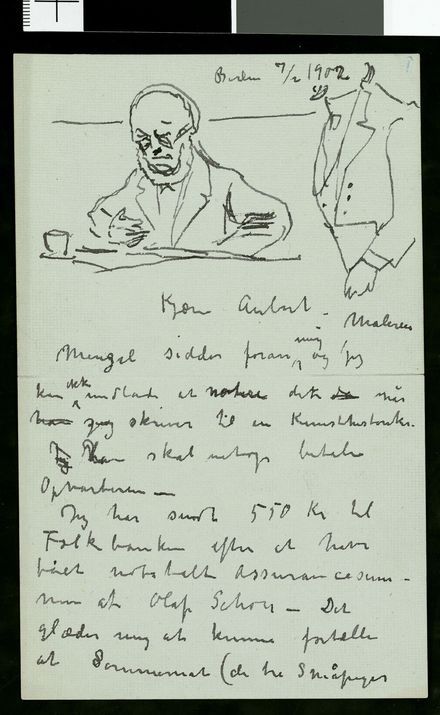 Berlin 7/2 1902
Kjære Aubert –
Maleren
Menzel sidder foran mig og jeg
kan ikke undlade at notere det da når
han jeg skriver til en Kunsthistoriker.
Jeg Han skal netop betale
Opvarteren –
Jeg har sendt 550 Kr til
Folkebanken efter at have
fået udbetalt Assurancesum-
men af Olaf Schou – Det
glæder mig at kunne fortælle
at Sommernat (de tre Småpiger